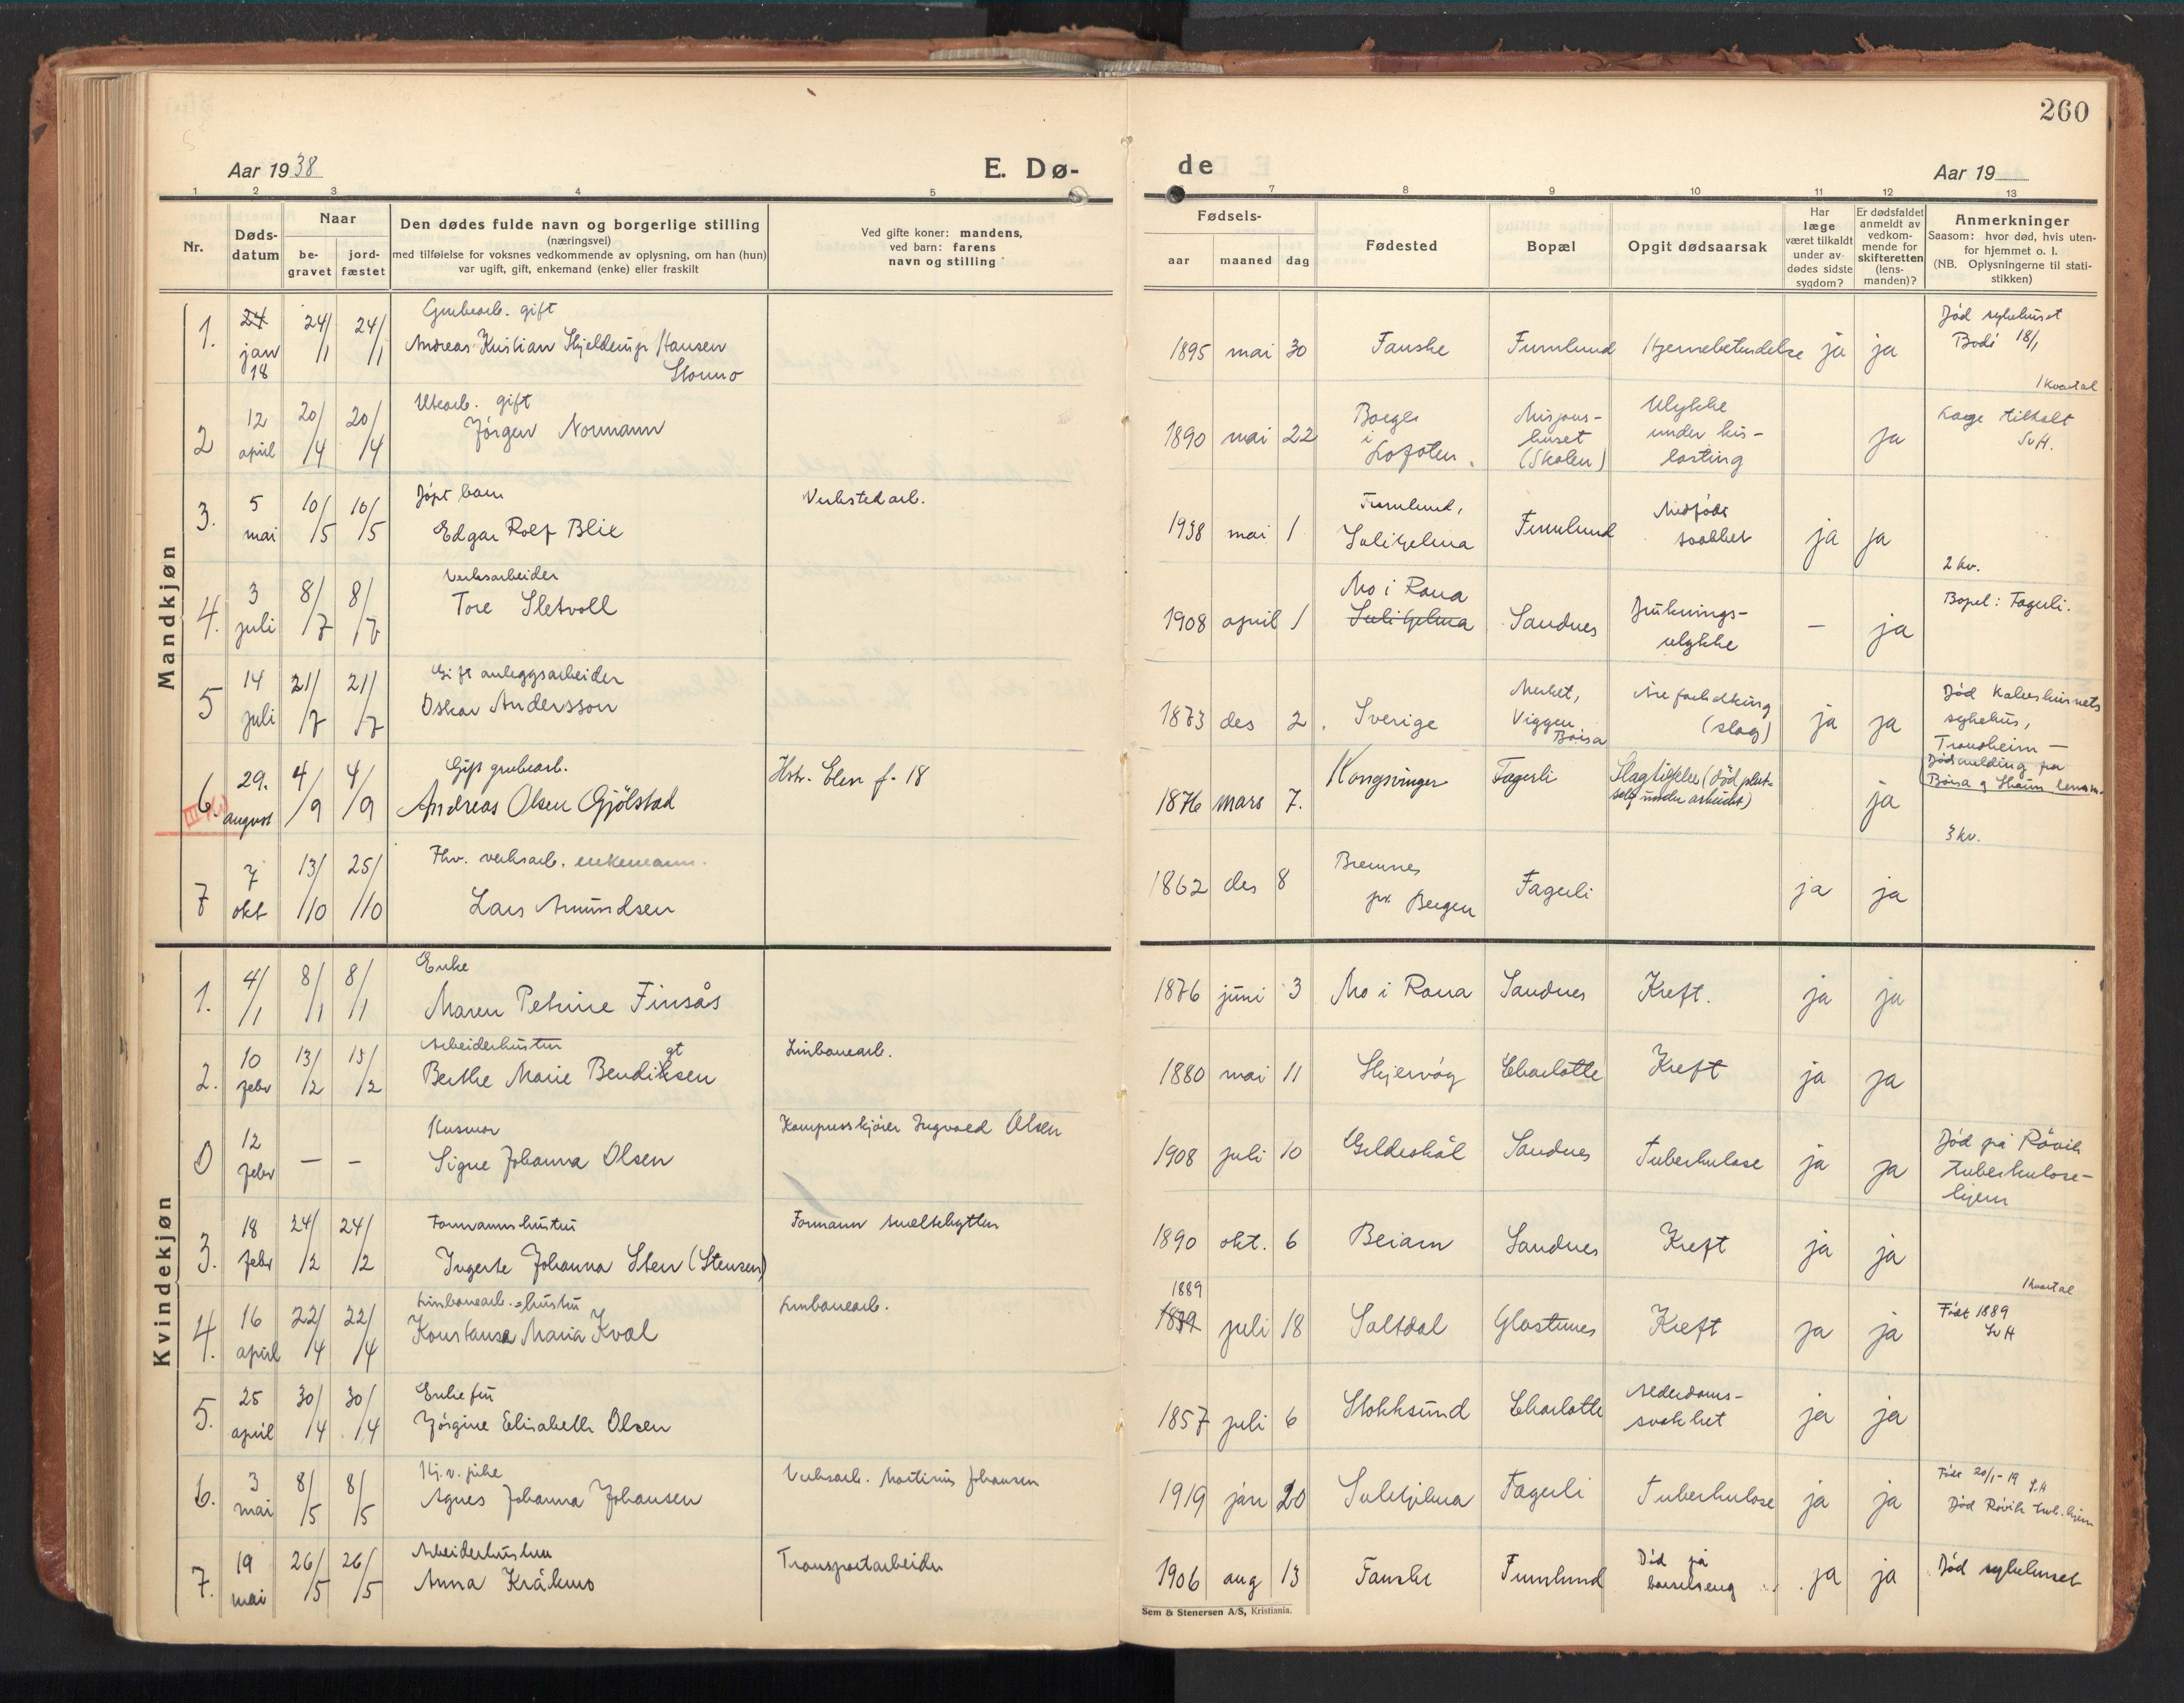 260
Aar 1938
E. Dø-
de
Aar 19
1 2 3 4 5 7 8 9 10 11 12 13
Nr.
Døds-
datum
Naar
be-
gravet
jord-
fæstet
Den dødes fulde navn og borgerlige stilling
(næringsvei)
med tilføielse for voksnes vedkommende av oplysning, om han (hun)
var ugift, gift, enkemand (enke) eller fraskilt
Ved gifte koner: mandens,
ved barn: farens
navn og stilling
Fødsels-
aar maaned dag
Fødested
Bopæl
Opgit dødsaarsak
Har
læge
været tilkaldt
under av-
dødes sidste
sygdom?
Er dødsfaldet
anmeldt av
vedkom-
mende for
skifteretten
(lens-
manden)?
Anmerkninger
Saasom: hvor død, hvis uten-
for hjemmet o. l.
(NB. Oplysningerne til stati-
stikken)
Mandkjøn
1.
24
jan
18
24/1 24/1
Grubearb. gift
Andreas Kristian Hjelderup Hansen
Stormo
1895 mai 30
Fauske
Furulund
Hjernebetendelse
ja ja
Død sykehuset
Bodø 18/1
1 kvartal
2
12
april
20/4 20/4
Utearb. gift
Jörgen Normann
1890 mai 22
Borge
i
Lofoten.
Misjons-
huset
(Skolen)
Ulykke
under kis-
lasting
ja
Læge tilkalt
SvH.
3.
5
mai
10/5 10/5
Döpt barn
Edgar Rolf Blix
Verkstedarb.
1938 mai 1
Furulund,
Sulitjelma
Furulund
Medfödt
svakhet
ja ja
2 kv.
4.
3
juli
8/7 8/7
Verksarbeider
Tore Sletvoll
1908 april 1
Mo i Rana
Sulitjelma
Sandnes
Druknings-
ulykke
— ja
Bopel: Fagerli.
5
14
juli
21/7 21/7
Gift anleggsarbeider
Oskar Andersson
1873 des 2
Sverige
Merket,
Viggen
Börsa
Åreforkalkning
(slag)
ja ja
Död
sykehus,
Trondheim —
Dödsmelding fra
Börsa og Skaun lensm.
6
III
29.
august
4/9 4/9
Gift grubearb.
Andreas Olsen Gjölstad
Hstr. Elen f. 18
1876 mars 7.
Kongsvinger
Fagerli
Slagtilfelle (död plut-
selig under arbeidet)
ja
3 kv.
7
7
okt
13/10 25/10
Fhv. verksarb. enkemann.
Lars Amundsen
1862 des 8
Bremnes
pr. Bergen
Fagerli
ja ja
Kvindekjøn
1.
4/1
8/1 8/1
Enke
Maren Petrine Finsås
1876 juni 3
Mo i Rana
Sandnes
Kreft.
ja ja
2.
10
febr
13/2 15/2
Arbeiderhustru
gt
Berthe Marie Bendiksen
Linbanearb.
1880 mai 11
Skjervög
Charlotte
Kreft
ja ja
0
12
febr
— —
Husmor
Signe Johanna Olsen
Kompresskjörer Ingvald Olsen
1908 juli 10
Gildeskål
Sandnes
Tuberkulose
ja ja
Död på Rövik
tuberkulose-
hjem
3.
18
febr
24/2 24/2
Formannshustru
Ingerte Johanna Sten (Stensen)
Formann smeltehytten
1890 okt. 6
Beiarn
Sandnes
Kreft
ja ja
1 kvartal
4.
16
april
22/4 22/4
Linbanearb.-hustru
Konstanse Maria Kval
Linbanearb.
1889
1839 juli 18
Saltdal
Glastunes
Kreft
ja ja
Födt 1889
SvH
5.
25
april
30/4 30/4
Enkefru
Jörgine Elisabeth Olsen
1857 juli 6
Stokksund
Charlotte
Alderdoms-
svakhet
ja ja
6.
3
mai
8/5 8/5
Hj.v. pike
Agnes Johanna Johansen
Verksarb. Martinus Johansen
1919 jan 20
Sulitjelma
Fagerli
Tuberkulose
ja ja
Födt 20/1-19 S.H
Död Rövik tub. hjem
7.
19
mai
26/5 26/5
Arbeiderhustru
Anna Kråkmo
Transportarbeider
1906 aug 13
Fauske
Furulund
Död på
barselseng
ja ja
Död sykehuset
Sem & Stenersen A/S, Kristiania.